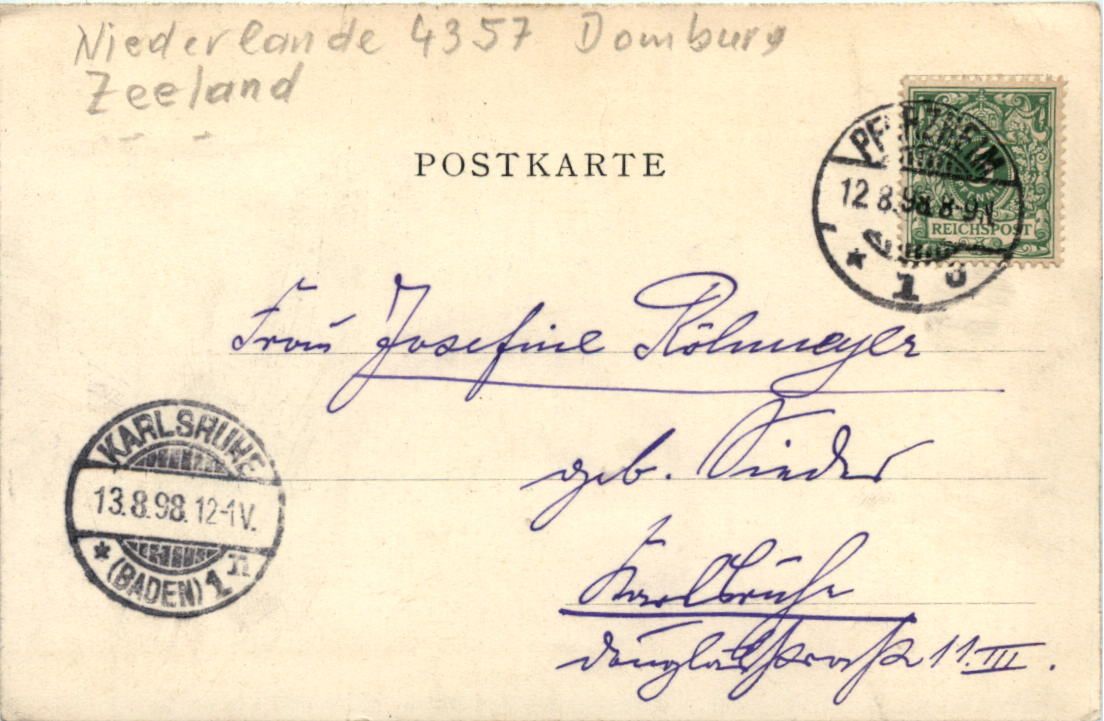 Niederlande 4357 Domburg
Zeeland
POSTKARTE
PFORZHEIM
12.8.98.8-9N.
* 1
REICHSPOST
Frau Josefine Röhmeyer
geb.
Karlsruhe
Douglasstraße 11.III.
KARLSRUHE
13.8.98.12-1V.
* (BADEN) 1